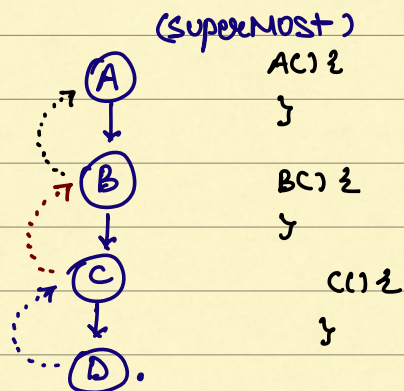 (superMOSt)
A
A() {
}
B
B() {
}
C
C() {
}
D.